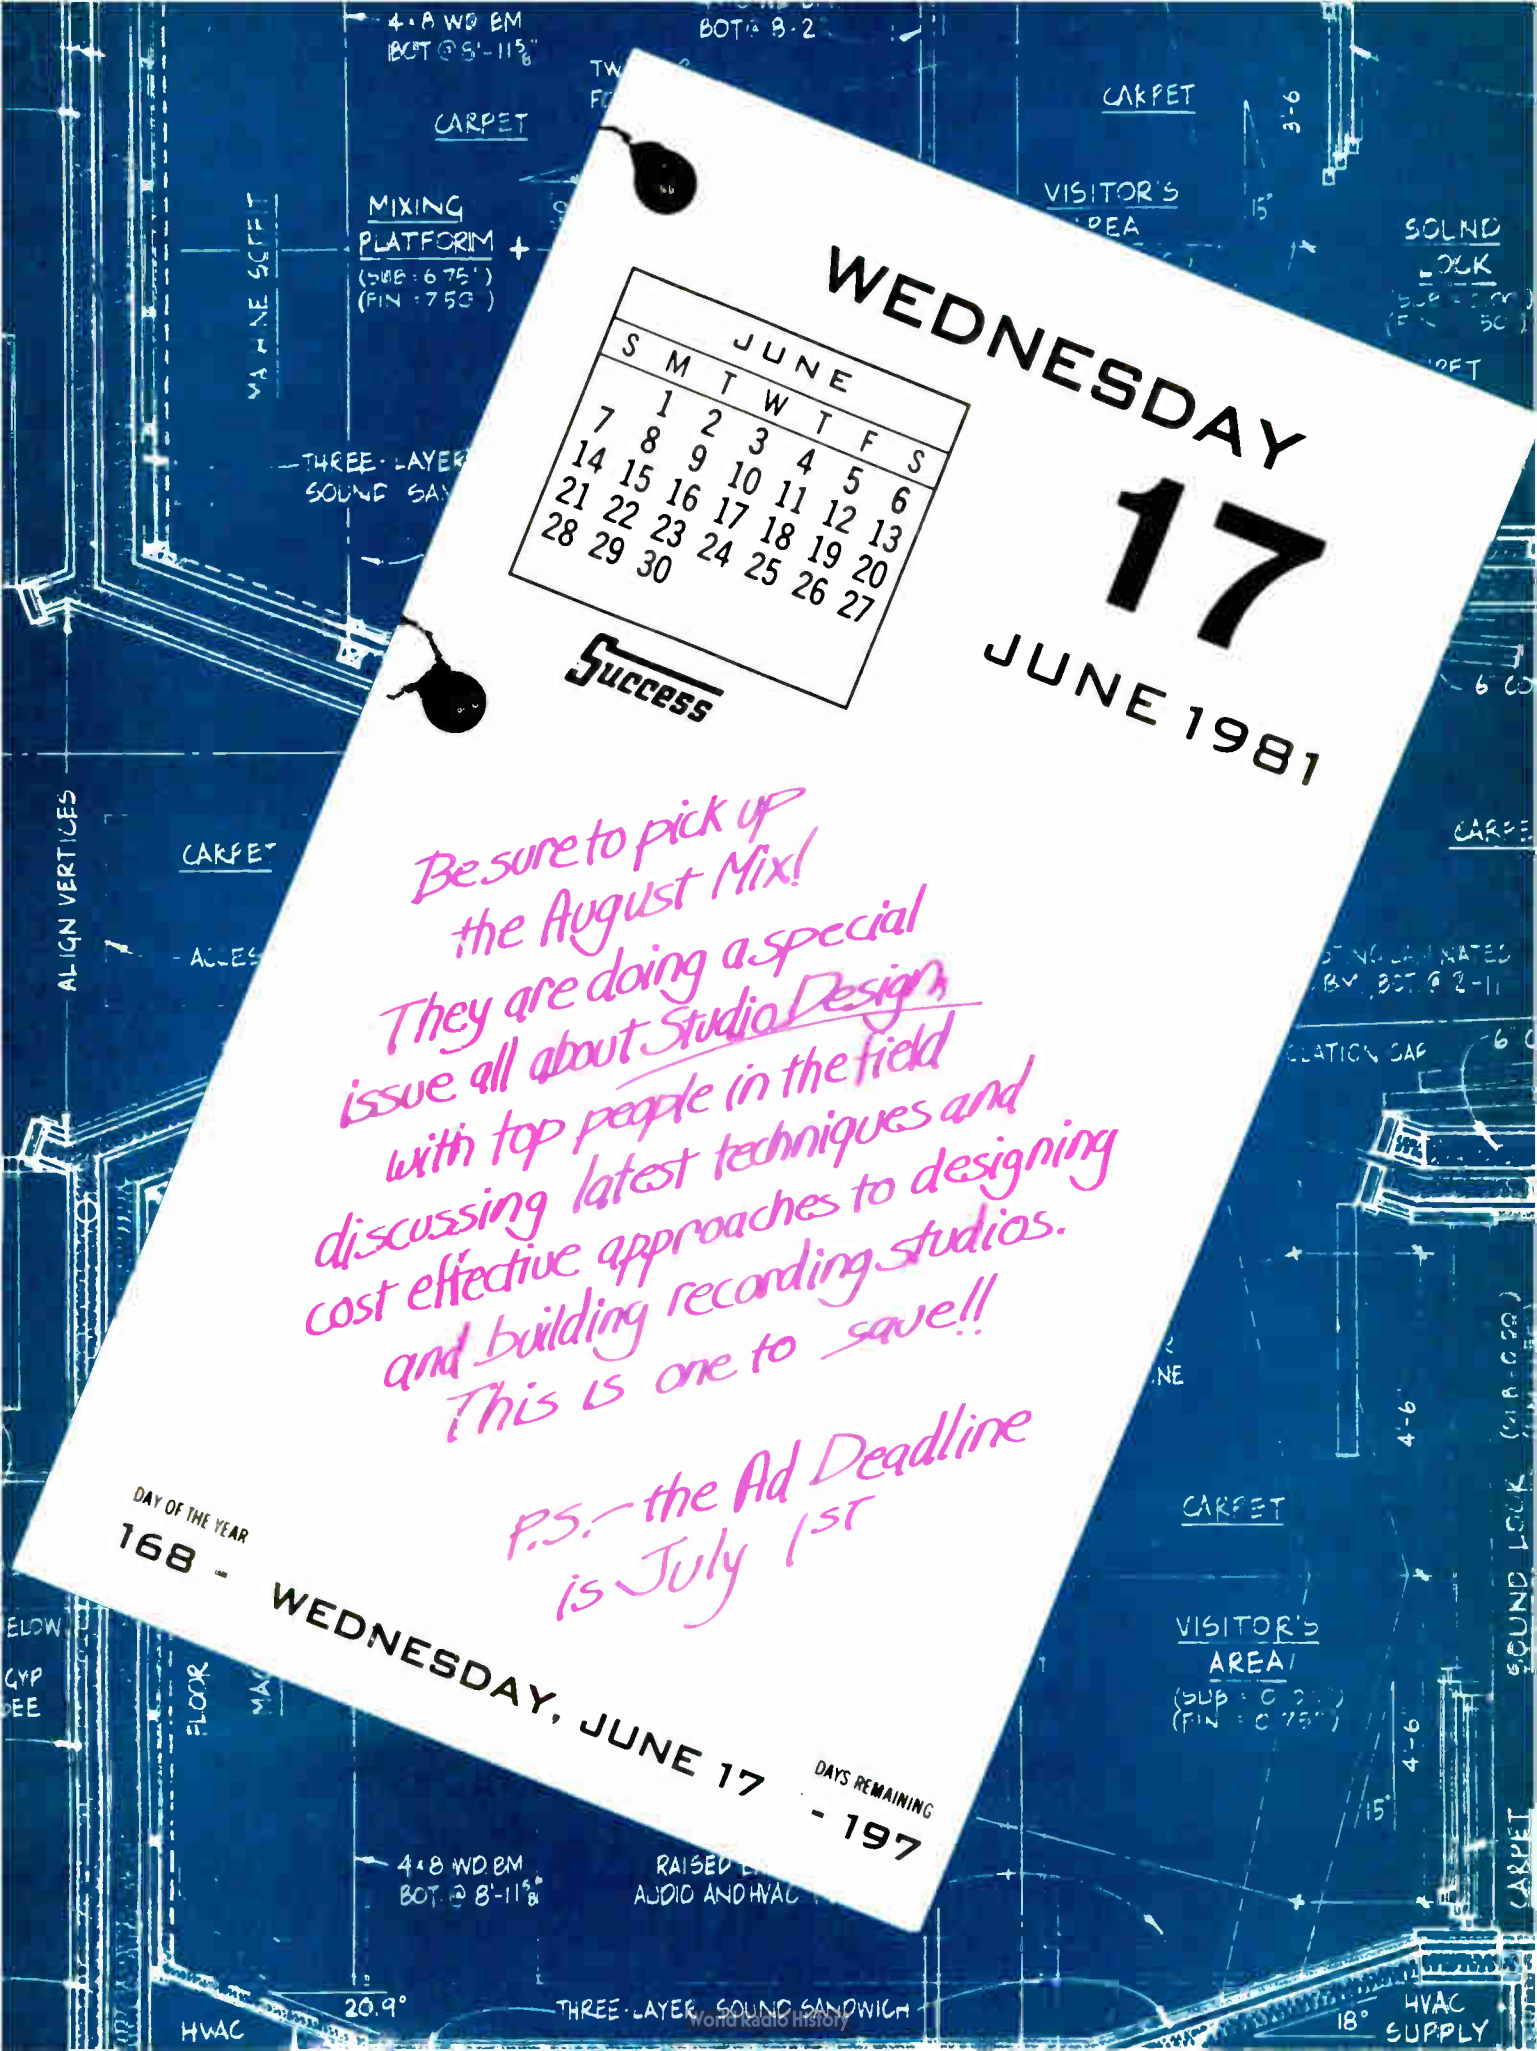 4×8 WD BM
BOT @ 8'-11 5/8"
BOT @ 8-2
CARPET
CARPET
3'-6
MIXING
PLATFORM
(SUB: 6.75")
(FIN: 7.50")
VISITOR'S
15°
SOUND
LOCK
THREE-LAYER
WEDNESDAY
17
JUNE 1981
JUNE
S M T W T F S
1 2 3 4 5 6
7 8 9 10 11 12 13
14 15 16 17 18 19 20
21 22 23 24 25 26 27
28 29 30
Success
Be sure to pick up
the August Mix!
They are doing a special
issue all about Studio Design
with top people in the field
discussing latest techniques and
cost effective approaches to designing
and building recording studios.
This is one to save!!
P.S. - the Ad Deadline
is July 1ST
DAY OF THE YEAR
168 - WEDNESDAY, JUNE 17 - 197
DAYS REMAINING
ALIGN VERTICES
CARPET
4'-6
CARPET
VISITOR'S
AREA
4'-6
15°
SOUND LOCK
CARPET
GYP
FLOOR
4×8 WD BM
BOT. @ 8'-11 5/8"
RAISED
AUDIO AND HVAC
20.9°
HVAC
THREE-LAYER SOUND SANDWICH
18°
HVAC
SUPPLY
World Radio History